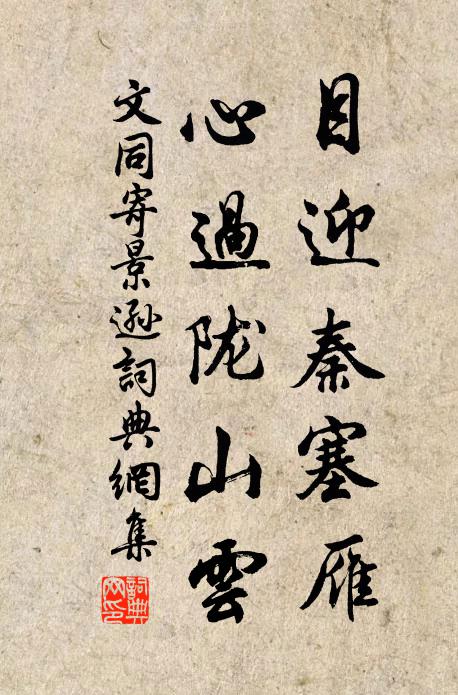 目迎秦塞雁
心過陇山雲
文同寄景遜詞典網集
詞典網印